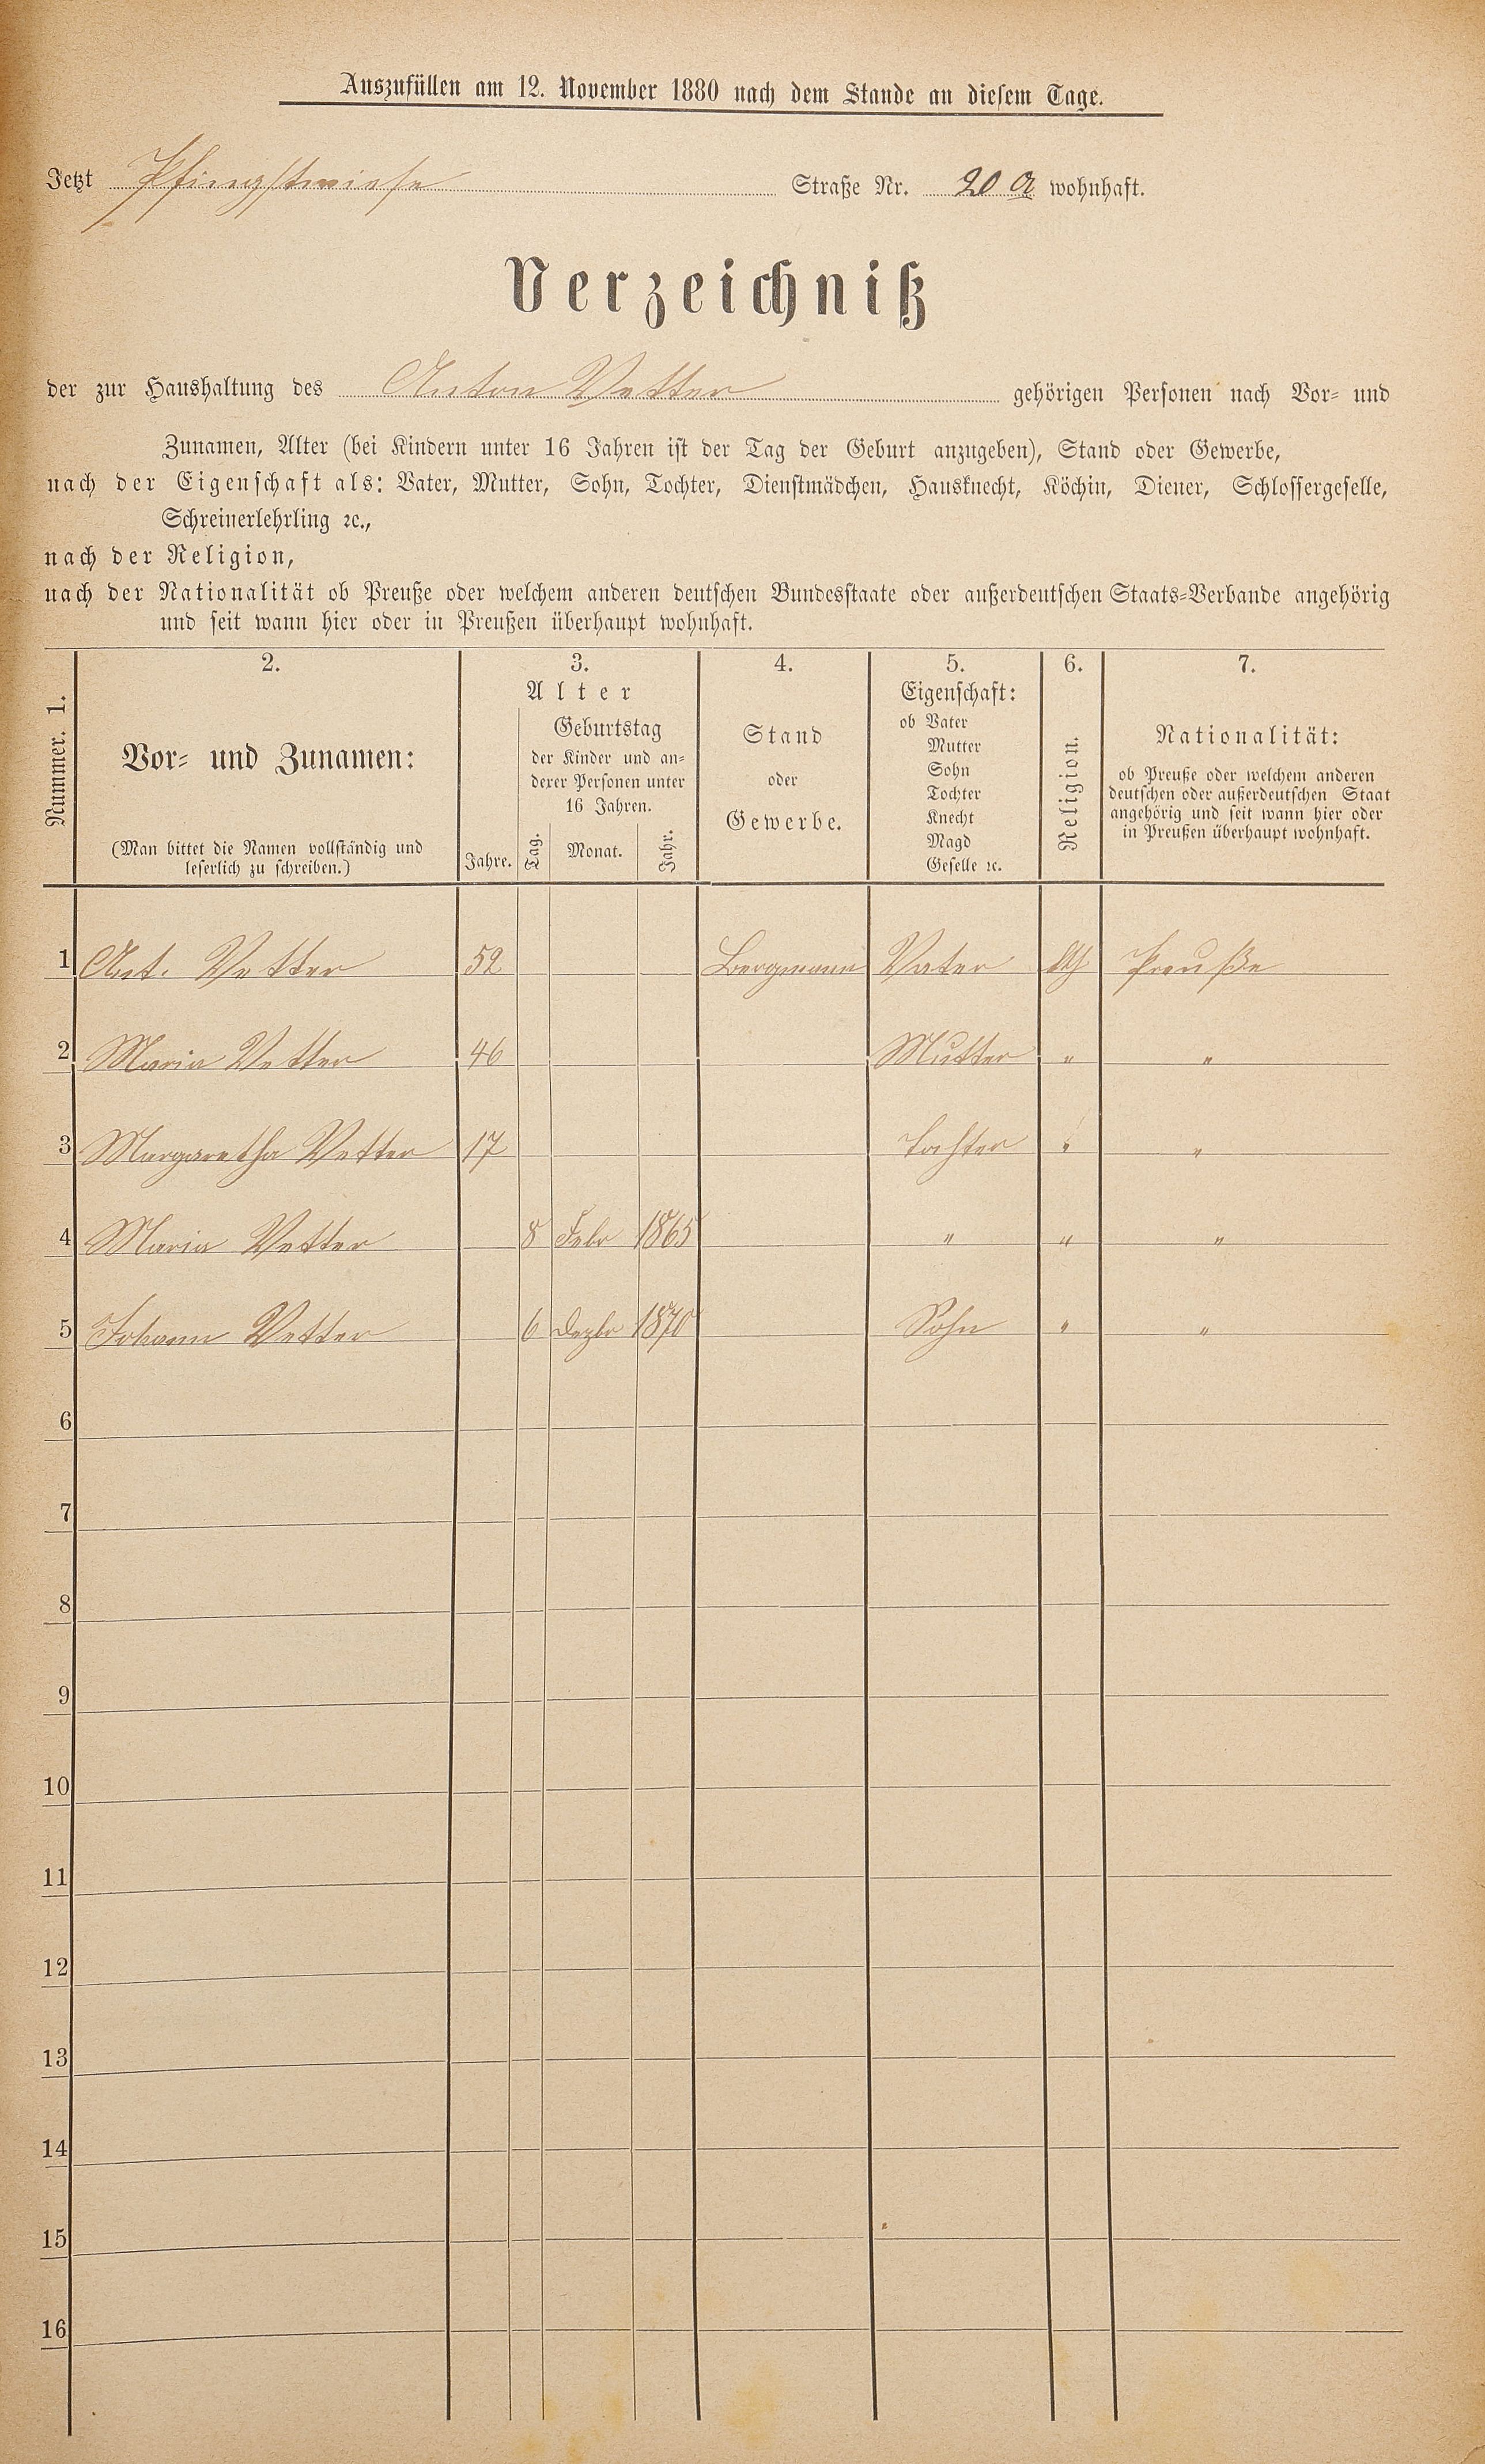 Auszufüllen am 12. November 1880 nach dem Stande an diesem Tage.
Jetzt Pfingstwiese Straße Nr. 20 a wohnhaft.
Verzeichniß
der zur Haushaltung des Anton Vetter gehörigen Personen nach Vor- und
Zunamen, Alter (bei Kindern unter 16 Jahren ist der Tag der Geburt anzugeben), Stand oder Gewerbe,
nach der Eigenschaft als: Vater, Mutter, Sohn, Tochter, Dienstmädchen, Hausknecht, Köchin, Diener, Schlossergeselle,
Schreinerlehrling ꝛc.,
nach der Religion,
nach der Nationalität ob Preuße oder welchem anderen deutschen Bundesstaate oder außerdeutschen Staats-Verbande angehörig
und seit wann hier oder in Preußen überhaupt wohnhaft.
Nummer. 1.
2.
Vor- und Zunamen:
(Man bittet die Namen vollständig und
leserlich zu schreiben.)
3.
Alter
Jahre.
Geburtstag
der Kinder und an-
derer Personen unter
16 Jahren.
Tag. Monat. Jahr.
4.
Stand
oder
Gewerbe.
5.
Eigenschaft:
ob Vater
Mutter
Sohn
Tochter
Knecht
Magd
Geselle ꝛc.
6.
Religion.
7.
Nationalität:
ob Preuße oder welchem anderen
deutschen oder außerdeutschen Staat
angehörig und seit wann hier oder
in Preußen überhaupt wohnhaft.
1 Ant. Vetter 52 Bergmann Vater kth Preuße
2 Maria Vetter 46 Mutter " "
3 Margaretha Vetter 17 Tochter " "
4 Maria Vetter 8 Febr 1865 " " "
5 Johann Vetter 6 Dezbr 1870 Sohn " "
6
7
8
9
10
11
12
13
14
15
16